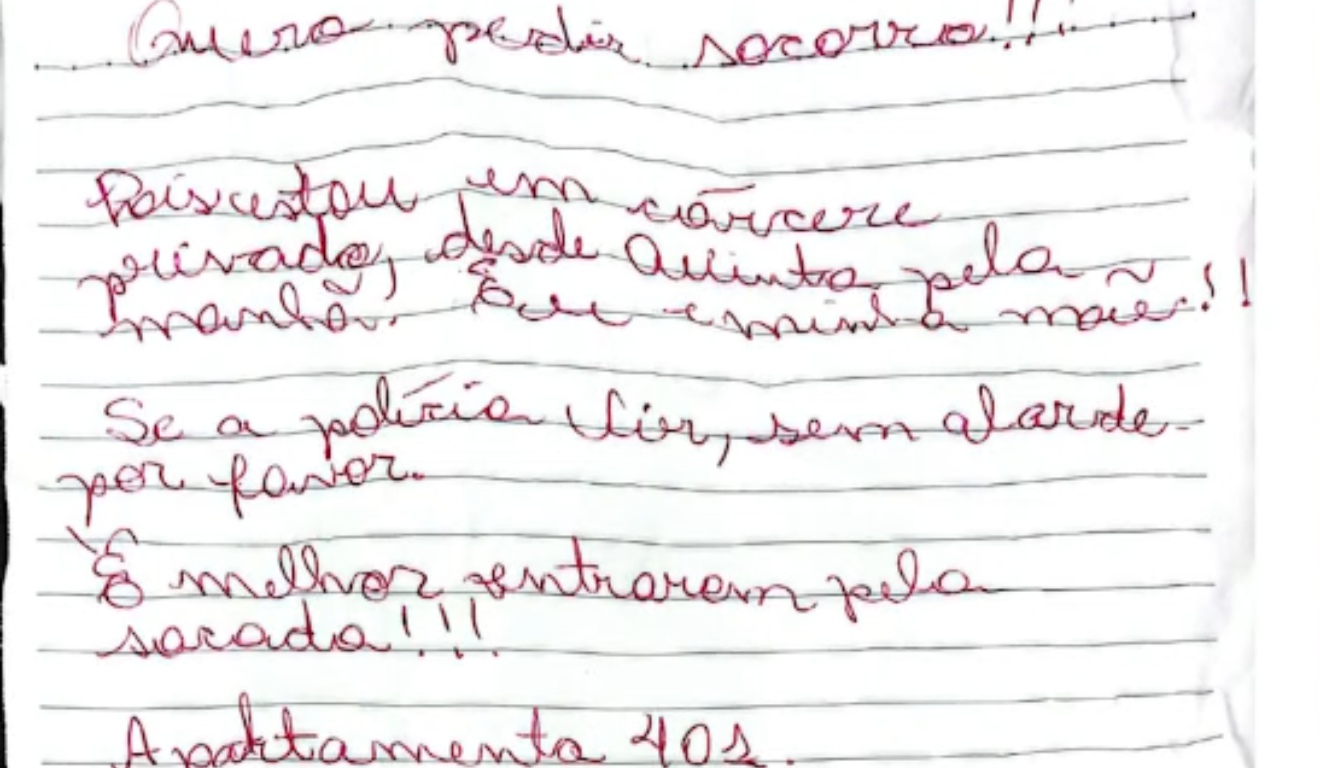 Quero pedir socorro!!!
Pois estou em cárcere
privado, desde Quinta pela
manhã. Eu e minha mãe!!
Se a polícia vier, sem alarde
por favor.
É melhor entrarem pela
sacada!!!
Apartamento 401.